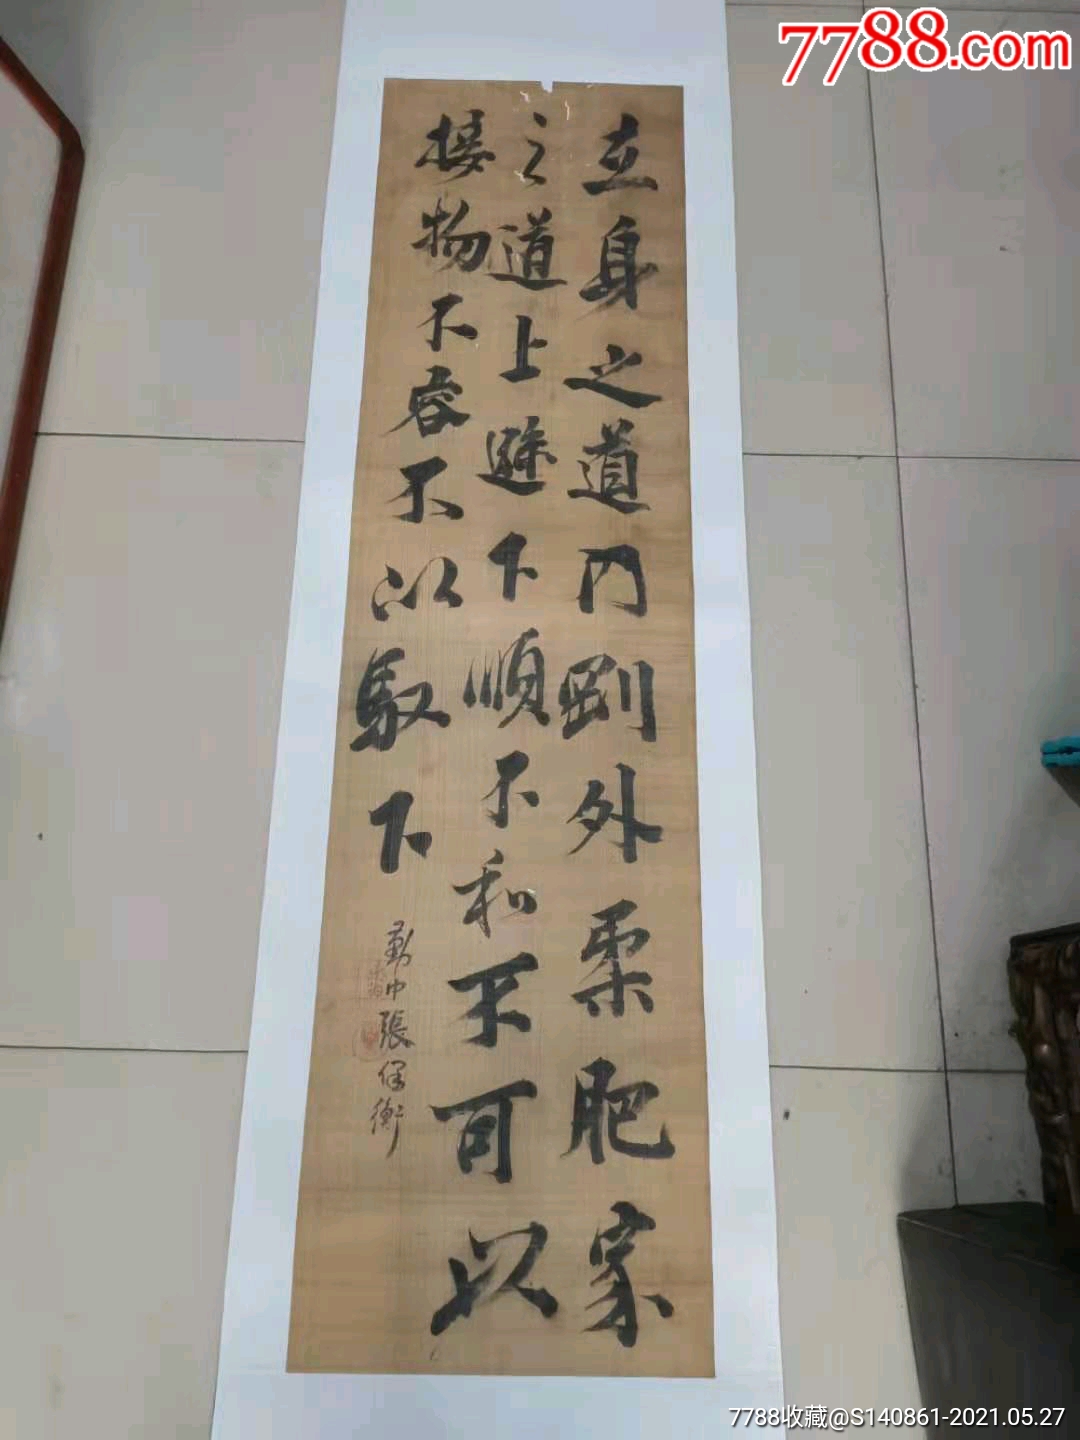 7788.com
立身之道内剛外柔肥家
之道上遜下順不和不可以
接物不容不以馭下
中張保衡
7788收藏@S140861-2021.05.27